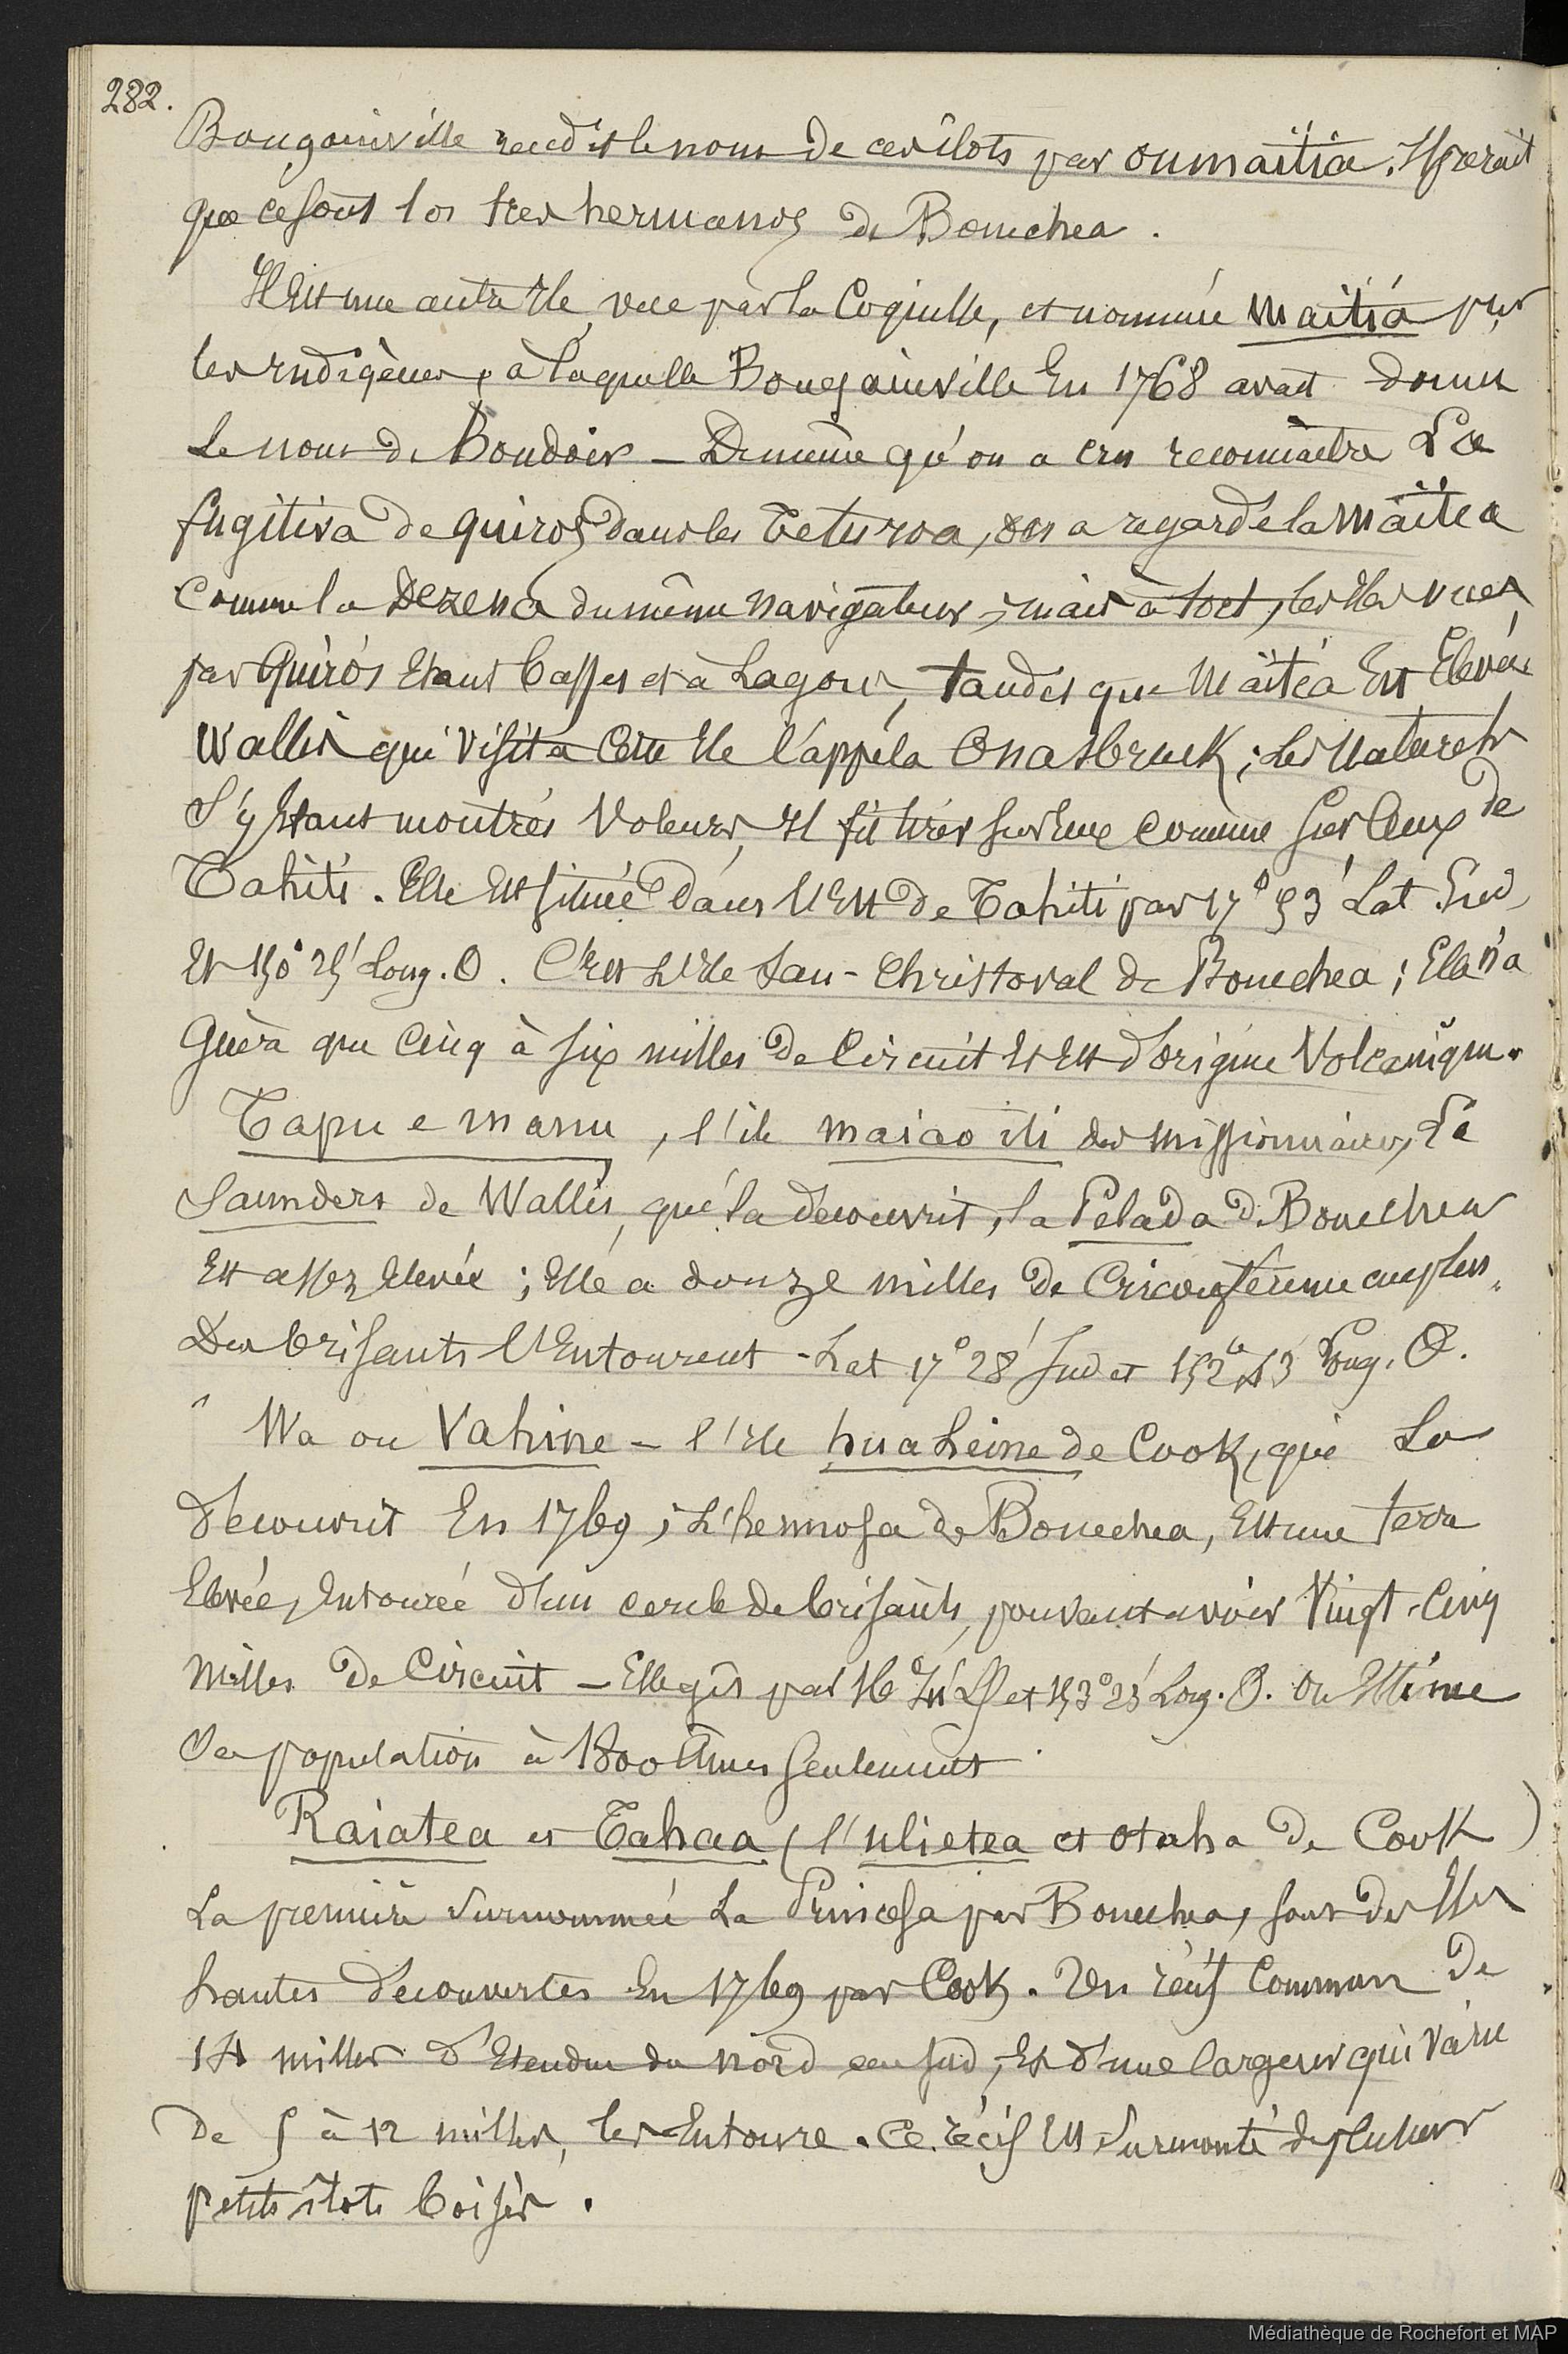 282.
Bougainville rendit le nom de ces ilots par oumaïtia. Il parait
que ce sont los tres hermanos de Bonechea.
Il est une autre Ile vue par la Coquille, et nommée Maïtia par
les Indigènes, à laquelle Bougainville En 1768 avait donné
le nom de Boudoir – De même qu'on a cru reconnaître La
fugitiva de quiros dans les Teturoa, on a regardé la Maïtea
comme la Dezena du même navigateur, mais à tort, les Iles vues
par Quiros Etant basses et à Lagons, tandis que Maïtéa Est Elevée
Wallis qui visita cette Ile l'appela Onasbruck ; les Naturels
s'y Etant montrés Voleurs, Il fit tirer sur Eux comme sur Ceux de
Tahiti. Elle Est située dans l'Est de Tahiti par 17° 53' Lat. Sud,
Et 150° 25' Long. O. C'est l'Ile San-Christoval de Bonechea ; Ele n'a
Guère que Cinq à six milles de Circuit Et Est d'origine Volcanique.
Tapu e manu, l'ile maiao iti des missionnaires, La
Saunders de Wallis, qui la découvrit, la Pelada de Bonechea
Est assez Elevée ; Elle a douze milles de Circonférence au plus.
Des brisants l'Entourent - Lat 17° 28' Sud et 152° 13' Long. O.
Wa ou Vahine – l'Ile huaheine de Cook, qui La
découvrit En 1769, L'hermosa de Bonechea, Est une terre
Elevée, Entourée d'un cercle de brisants, pouvant avoir Vingt-Cinq
Milles de Circuit – Elle gît par 16° et 153° 23' Long. O. On Estime
Sa population à 1800 âmes seulement
Raiatea et Tahaa (l'ulietea et otaha de Cook)
La première surnommée La Princesa par Bonechea, sont des Iles
hautes découvertes En 1769 par Cook. Un récif Commun de
14 milles d'Etendue du nord au sud, Et d'une largeur qui varie
de 5 à 12 milles, les Entoure. Ce récif Est surmonté de plusieurs
petits ilots boisés.
Médiathèque de Rochefort et MAP